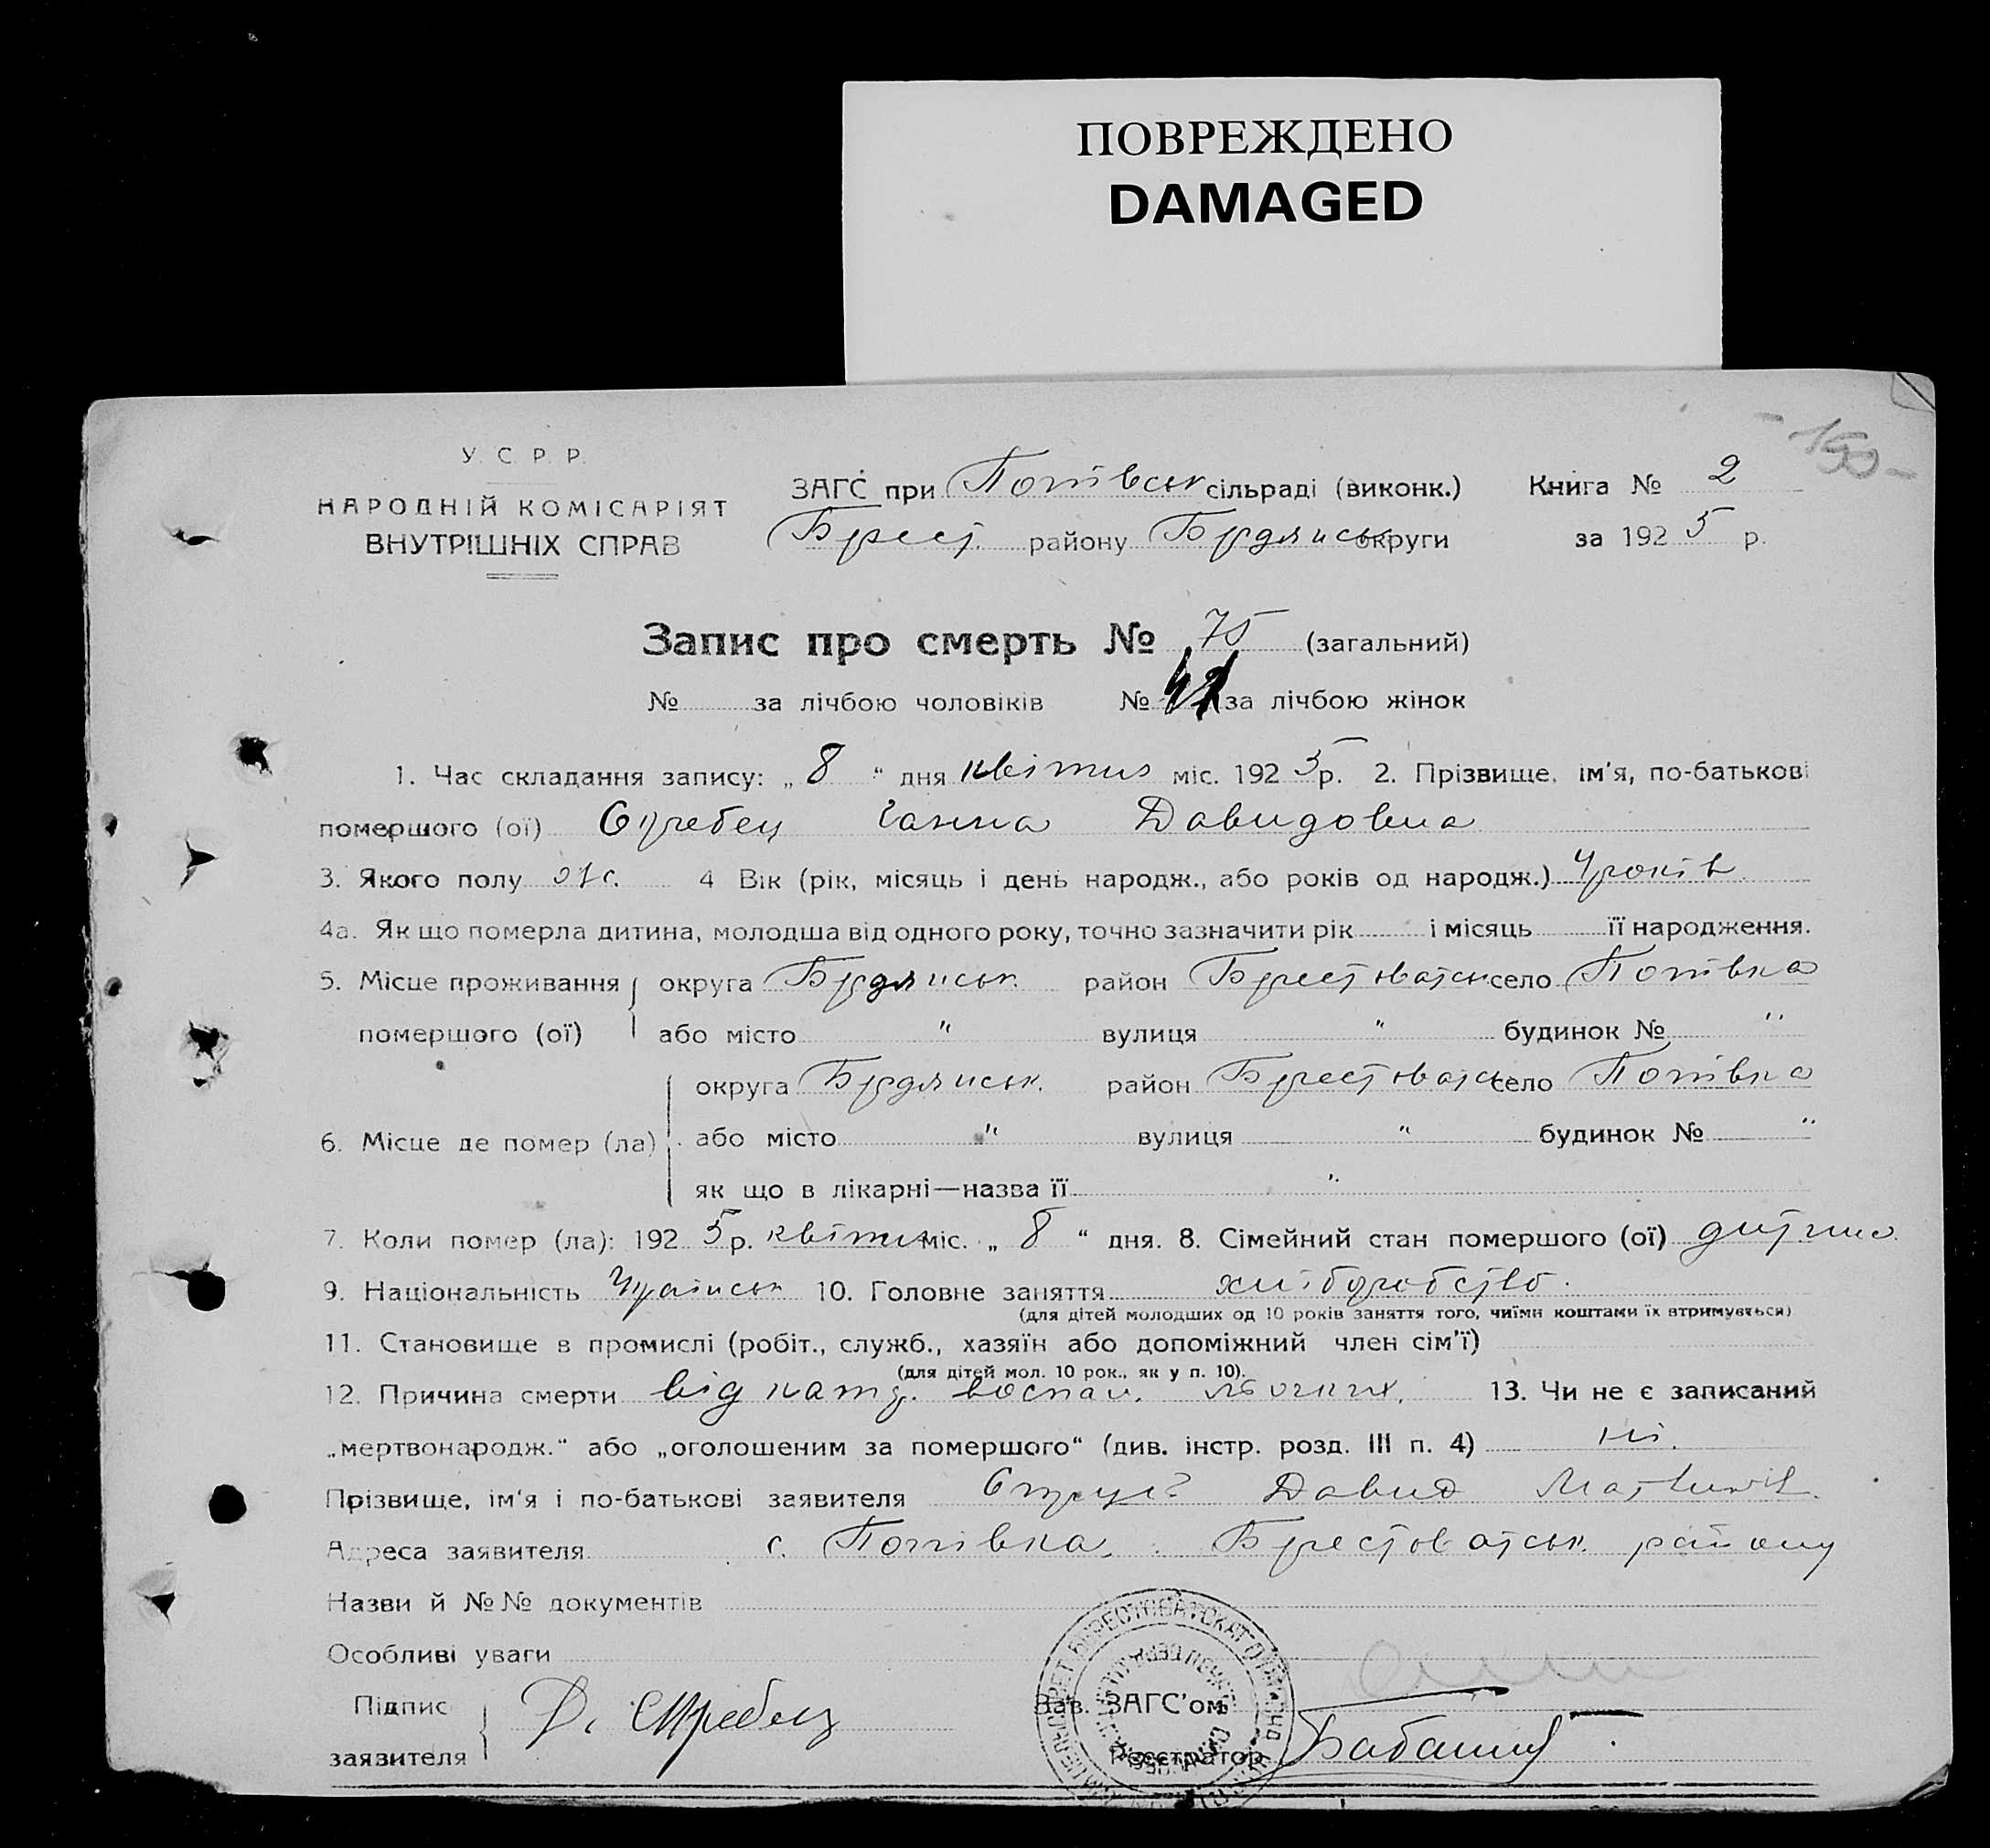 ПОВРЕЖДЕНО
DAMAGED
150
У. С. Р. Р.
НАРОДНІЙ КОМІСАРІЯТ
ВНУТРІШНІХ СПРАВ
ЗАГС при Попівськ сільраді (виконк.)
Брест. району Бердянськ округи
Книга № 2
за 1925 р.
Запис про смерть № 75 (загальний)
№ за лічбою чоловіків № за лічбою жінок
1. Час складання запису: „ 8 “ дня квітня міс. 1925 р. 2. Прізвище, ім'я, по-батькові
помершого (ої) Ганна Давидовна
3. Якого полу ж. 4 Вік (рік, місяць і день народж., або років од народж.) 4 років
4а. Як що померла дитина, молодша від одного року, точно зазначити рік і місяць її народження.
5. Місце проживання округа Бердянськ. район Брестоватськ село Попівка
помершого (ої) або місто " вулиця " будинок № "
округа Бердянськ. район Брестоватськ село Попівка
6. Місце де помер (ла) або місто " вулиця " будинок № "
як що в лікарні—назва її "
7. Коли помер (ла): 1925 р. квітня міс. „ 8 “ дня. 8. Сімейний стан помершого (ої) дитина
9. Національність Українськ 10. Головне заняття хліборобство.
(для дітей молодших од 10 років заняття того, чиїми коштами їх втримувться)
11. Становище в промислі (робіт., служб., хазяїн або допоміжний член сім'ї)
(для дітей мол. 10 рок., як у п. 10).
12. Причина смерти від воспал. 13. Чи не є записаний
„мертвонародж.“ або „оголошеним за помершого“ (див. інстр. розд. III п. 4) ні.
Прізвище, ім'я і по-батькові заявителя Давид
Адреса заявителя с. Попівка, Брестоватськ. району
Назви й №№ документів
Особливі уваги
Підпис
заявителя Д. Стребец
Зав. ЗАГС'ом
Реєстратор